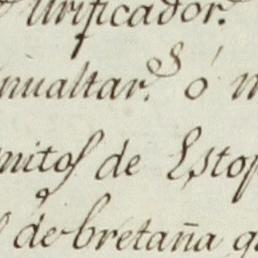 urificador.
nualtar.s ó
mitos de Estop
de bretaña